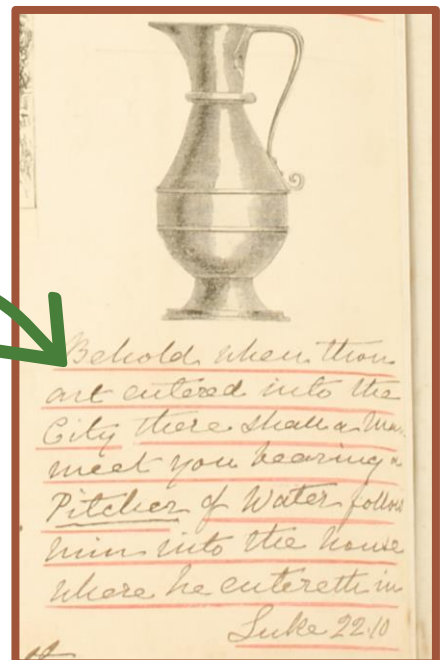 Behold when thou
art entered into the
City there shall a Man
meet you bearing a
Pitcher of Water follow
him into the house
where he entereth in
Luke 22.10
of